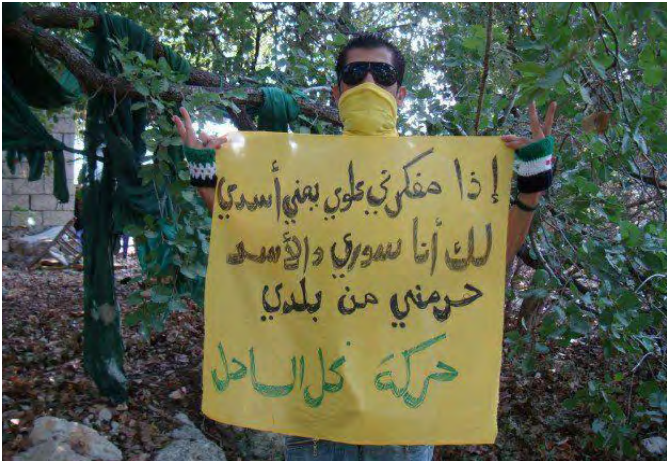 إذا مفكرني علوي يعني أسدي
لك أنا سوري والأسد
حرمني من بلدي
حركة نحل الساحل